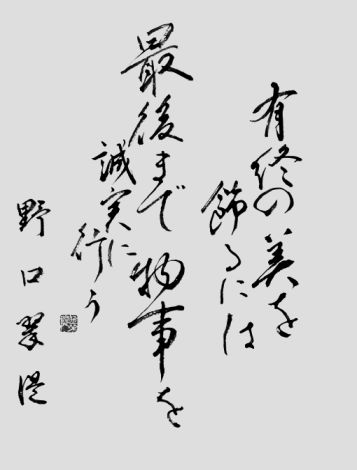 有終の美を
飾るには
最後まで物事を
誠実に
行う
野口翠